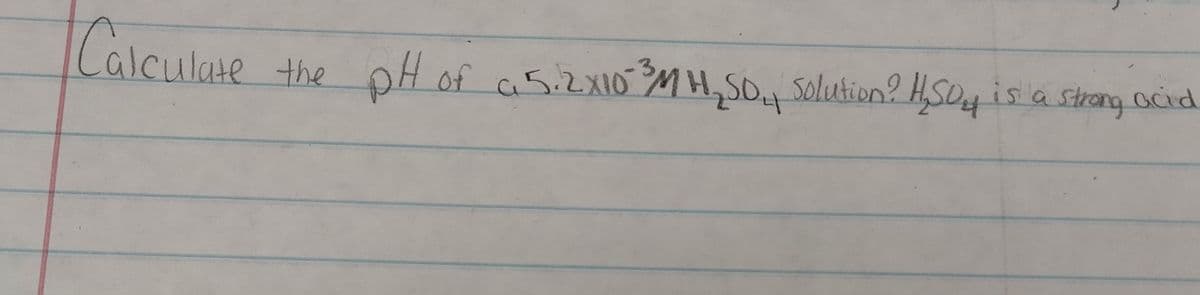 Calculate the pH of a 5.2x10⁻³M H₂SO₄ Solution? H₂SO₄ is a strong acid